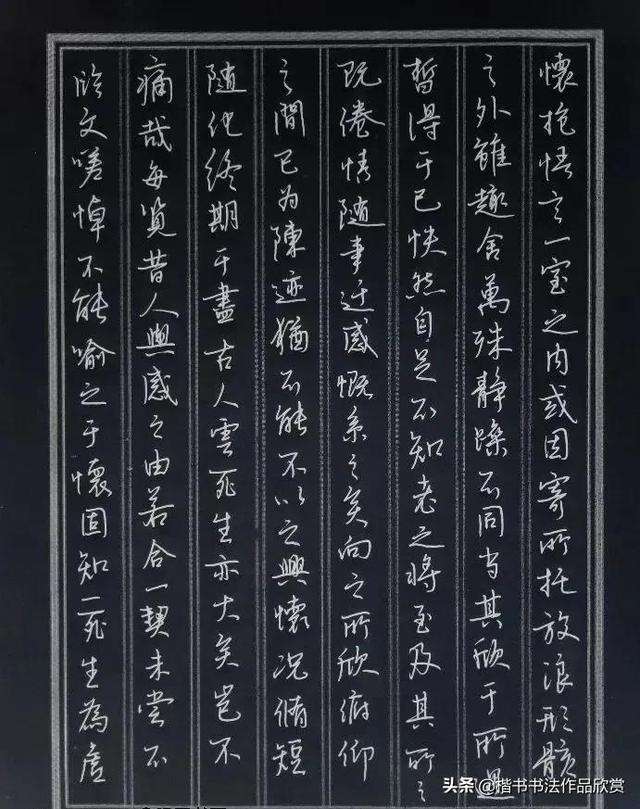 懷抱悟言一室之内或因寄所托放浪形骸
之外雖趣舍萬殊静躁不同当其欣于所遇
暫得于己快然自足不知老之將至及其所之
既倦情隨事迁感慨系之矣向之所欣俯仰
之間已为陳迹猶不能不以之興懷况脩短
隨化終期于盡古人雲死生亦大矣豈不
痛哉每览昔人興感之由若合一契未嘗不
临文嗟悼不能喻之于懷固知一死生為虚
头条@楷书书法作品欣赏